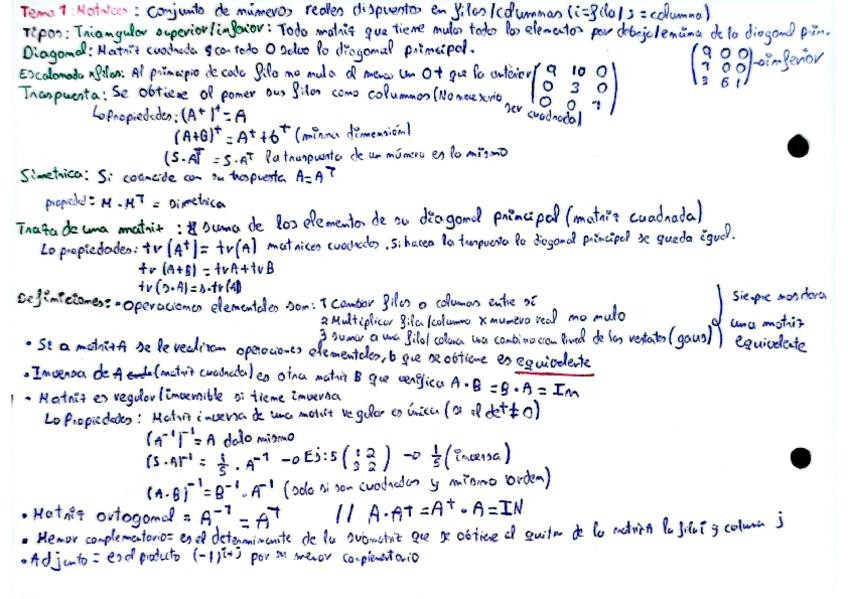 Tema 1: Matrices: Conjunto de números reales dispuestos en filas/columnas (i=fila/j=columna)
Tipos: Triangular superior/inferior: Toda matriz que tiene nulos todos los elementos por debajo/encima de la diagonal prin.
Diagonal: Matriz cuadrada con todo 0 salvo la diagonal principal.
Escalonada xfilas: Al principio de cada fila no nula al menos un 0 + que la anterior (9 10 0
0 3 0
0 0 1)
(9 0 0
7 0 0
3 6 1) → inferior
Traspuesta: Se obtiene al poner sus filas como columnas (No necesario ser cuadrada)
Lo propiedades: (A^t)^t = A
(A+B)^t = A^t + B^t (misma dimensión)
(S·A)^T = S·A^T la traspuesta de un número es lo mismo
Simetrica: Si coincide con su traspuesta A=A^T
propiedad: M·M^T = Simetrica
Traza de una matriz: suma de los elementos de su diagonal principal (matriz cuadrada)
Lo propiedades: tr (A^t) = tr(A) matrices cuadradas. Si hacen la traspuesta la diagonal principal se queda igual.
tr (A+B) = trA+trB
tr(s·A)=s·tr(A)
Definiciones: • Operaciones elementales son: 1 Cambiar filas o columnas entre sí
2 Multiplicar fila/columna x numero real no nulo
3 sumar a una fila/columna una combinacion lineal de las restantes (gauss)
Siempre nos dara
una matriz
equivalente
• Si a matriz A se le realizan operaciones elementales, b que se obtiene es equivalente
• Inversa de A (matriz cuadrada) es otra matriz B que verifica A·B = B·A = In
• Matriz es regular/inversible si tiene inversa
Lo Propiedades: Matriz inversa de una matriz regular es única (si el det ≠ 0)
(A^-1)^-1 = A da lo mismo
(S·A)^-1 = 1/5 · A^-1 → Ej: 5 (1 2
3 2) → 1/5 (inversa)
(A·B)^-1 = B^-1 · A^-1 (solo si son cuadradas y mismo orden)
• Matriz ortogonal = A^-1 = A^T // A·A^t = A^t·A = IN
• Menor complementario = es el determinante de la submatriz que se obtiene al quitar de la matriz A la fila i y columna j
• Adjunto = es el producto (-1)^i+j por su menor complementario